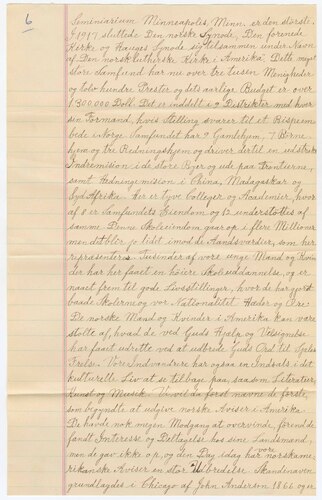 6
Seminiarium Minneapolis, Minn. er den störste.
I 1917 sluttede Den norske Synode, Den forenede
Kirke og Hauges Synode sig tilsammen under Navn
af „Den norsk lutherske Kirke i Amerika". Dette meget
store Samfund har nu over tre tusen Menigheder
og tolv hundre Prester og det aarlige Budget er over
1'300.000 Doll. Det er inddelt i 9 Distrikter med hver
sin Formand, hvis Stilling svarer til et Bispem-
bede i Norge. Samfundet har 9 Gamlehjem, 7 Börne-
hjem og tre Redningshjem og driver dertil en udstrakt
Indremission i de store Byer og ude paa Frontierne,
samt Hedningemission i China, Madagaskar og
Syd Afrika. Her er tyve Colleger og Academier, hvor
af 8 er Samfundets Eiendom og 12 understöttes af
samme. Denne Skoleiendom gaar op i flere Millioner
men det blev jo lidet imod de Aandsværdier, som her
representeres. Tusinder af vore unge Mænd og Kvin-
der har her faaet en höiere Skoleuddannelse, og er
naaet frem til gode Livsstillinger, hvor de har gjort
baade Skolerne og vor Nationalitet Hæder og Ære.
De norske Mænd og Kvinder i Amerika kan være
stolte af, hvad de ved Guds Hjælp og Velsignelse
har faaet udrette ved at udbrede Guds Ord til Sjæles
Frels. Vore Indvandrere har ogsaa en Indsats i det
kulturelle Liv at se tilbage paa, saasom Literatur,
Kunst og Musik. Vi vil da först nævne de förste,
som begyndte at udgive norske Aviser i Amerika.
De havde nok megen Modgang at overvinde, förend de
fandt Interesse og Deltagelse hos sine Landsmænd,
men de gav ikke op, og den Dag idag har vore norskame-
rikanske Aviser en stor Udbredelse. Skandinaven
grundlagdes i Chicago af John Anderson 1866 og er